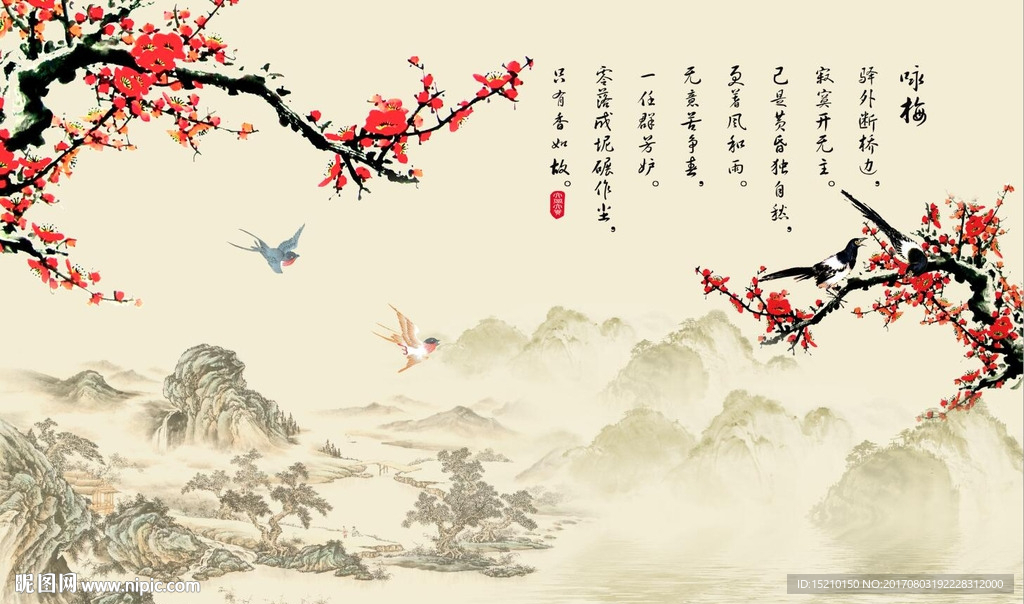 咏梅
驿外断桥边，
寂寞开无主。
已是黄昏独自愁，
更着风和雨。
无意苦争春，
一任群芳妒。
零落成坭碾作尘，
只有香如故。
昵图网 www.nipic.com
ID:15210150 NO:20170803192228312000